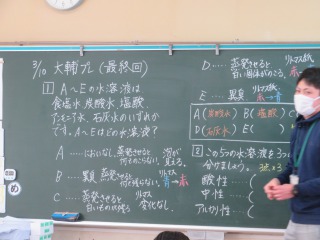 3/10 大輔プレ(最終回)
1 A~Eの水溶液は
食塩水、炭酸水、塩酸、
アンモニア水、石灰水のいずれか
です。A~Eはどの水溶液?
A……においなし、蒸発させると
何ものこらない。
B……異臭 蒸発させると
何も残らない。 リトマス
青→赤
C……蒸発させると
白いものが残る リトマス
変化なし
D……蒸発させると
白い固体がのこる。 リトマス紙
E……異臭 リトマス紙
赤→青
A(炭酸水) B(塩酸)
D(石灰水) E(
2 この5つの水溶液を3つ
分けましょう。
酸性……(
中性……(
アルカリ性……(
め